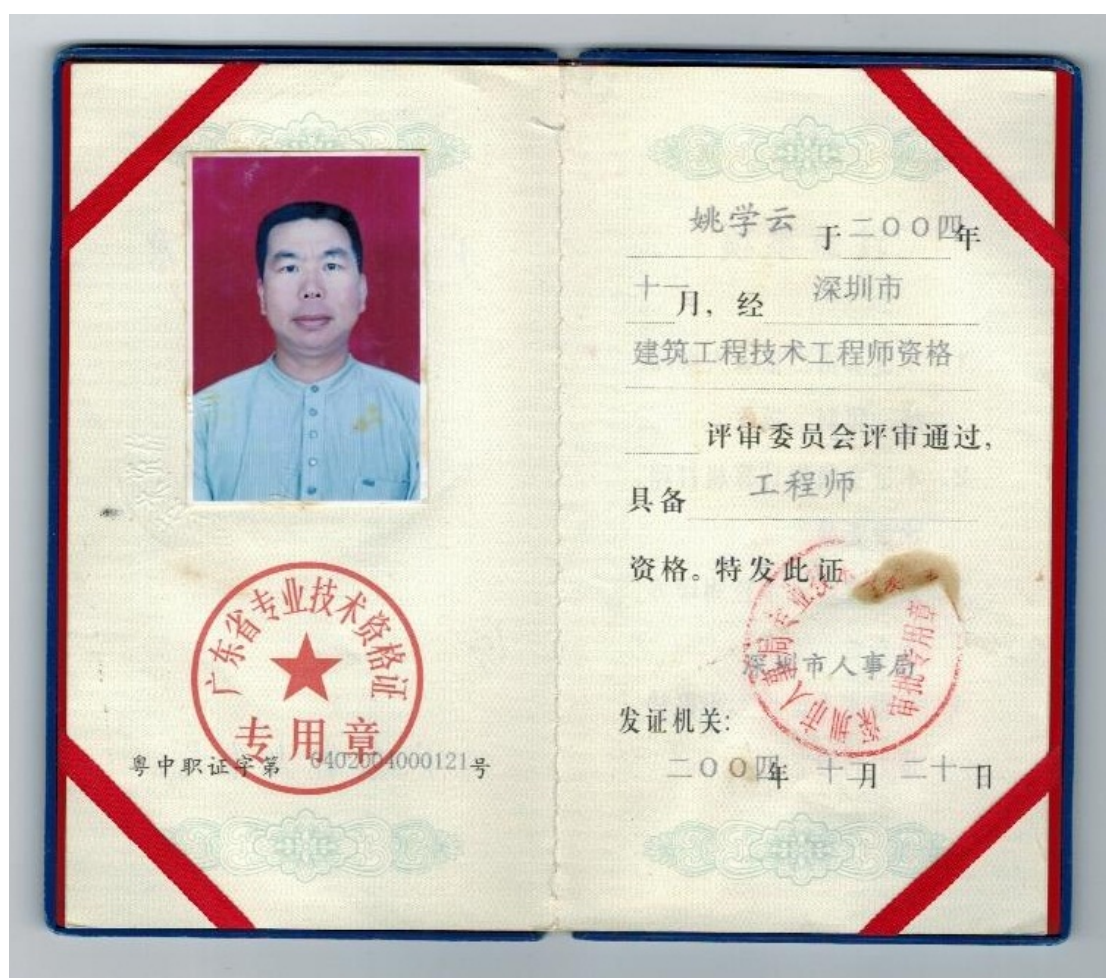 广东省专业技术资格证
专用章
粤中职证字第 0402004000121号
姚学云 于二00四年
十一月，经 深圳市
建筑工程技术工程师资格
评审委员会评审通过，
具备 工程师
资格。特发此证
深圳市人事局
审批专用章
发证机关：
二00四年 十二月 二十一日